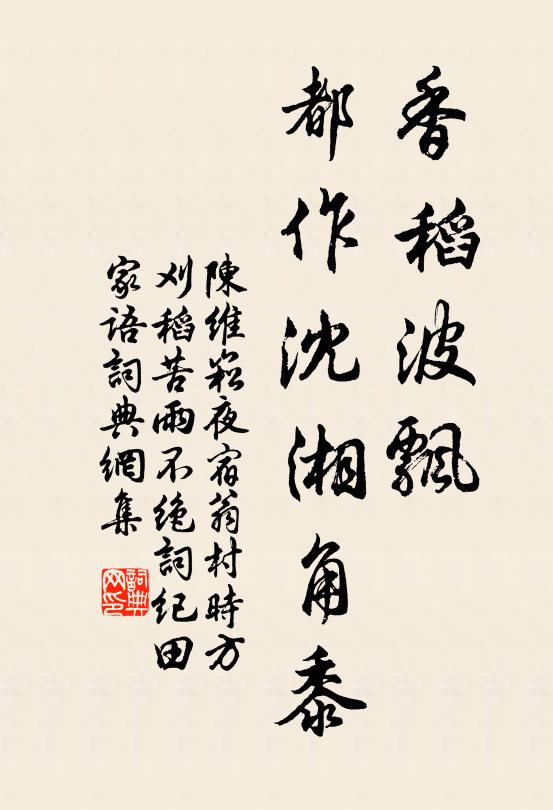 香稻波飄
都作沈湘角黍
陳維崧夜宿翁村時方
刈稻苦雨不絶詞紀田
家語詞典網集
詞典
网印